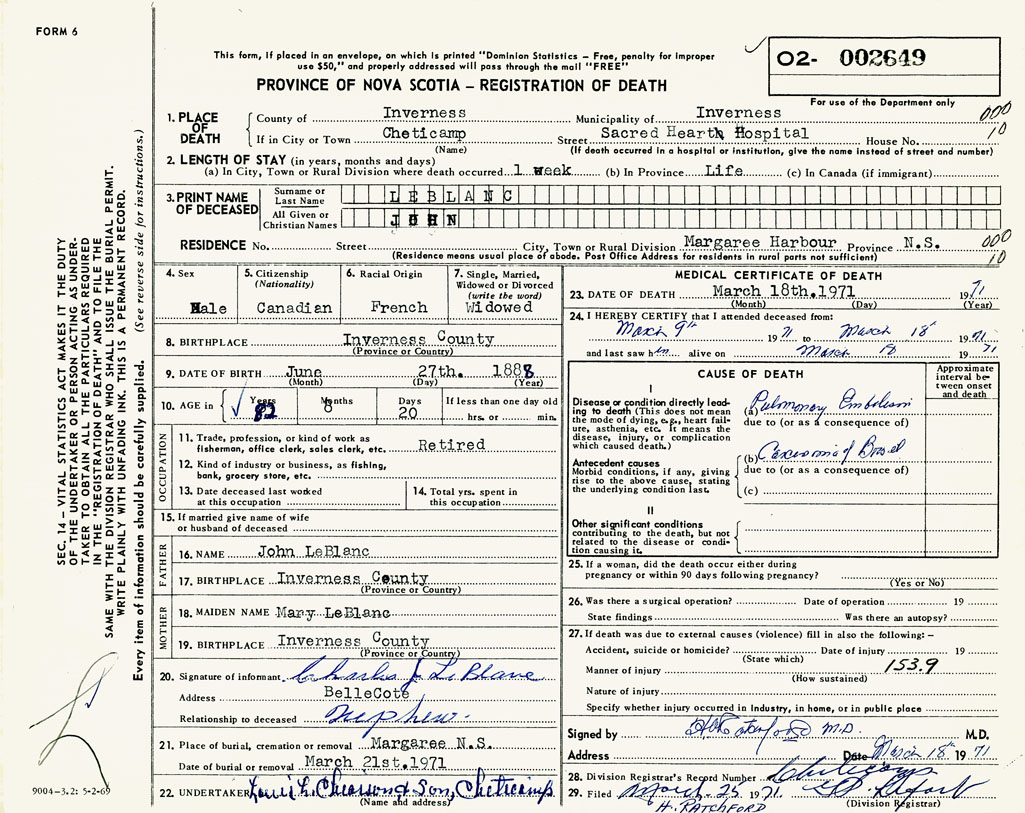 FORM 6
This form, if placed in an envelope, on which is printed "Dominion Statistics – Free, penalty for improper
use $50," and properly addressed will pass through the mail "FREE"
PROVINCE OF NOVA SCOTIA – REGISTRATION OF DEATH
O2- 002649
For use of the Department only
1. PLACE OF DEATH
County of Inverness Municipality of Inverness 000
If in City or Town Cheticamp Street Sacred Heart Hospital House No. 10
(Name) (If death occurred in a hospital or institution, give the name instead of street and number)
2. LENGTH OF STAY (in years, months and days)
(a) In City, Town or Rural Division where death occurred 1 week (b) In Province Life (c) In Canada (if immigrant)
3. PRINT NAME OF DECEASED
Surname or Last Name LEBLANC
All Given or Christian Names JOHN
RESIDENCE No. Street City, Town or Rural Division Margaree Harbour Province N.S. 000
(Residence means usual place of abode. Post Office Address for residents in rural parts not sufficient) 10
4. Sex Male
5. Citizenship (Nationality) Canadian
6. Racial Origin French
7. Single, Married, Widowed or Divorced (write the word) Widowed
8. BIRTHPLACE Inverness County
(Province or Country)
9. DATE OF BIRTH June 27th. 1888
(Month) (Day) (Year)
10. AGE in Years 82 Months 8 Days 20 If less than one day old hrs. or min.
OCCUPATION
11. Trade, profession, or kind of work as
fisherman, office clerk, sales clerk, etc. Retired
12. Kind of industry or business, as fishing,
bank, grocery store, etc.
13. Date deceased last worked
at this occupation
14. Total yrs. spent in
this occupation
15. If married give name of wife
or husband of deceased
FATHER
16. NAME John LeBlanc
17. BIRTHPLACE Inverness County
(Province or Country)
MOTHER
18. MAIDEN NAME Mary LeBlanc
19. BIRTHPLACE Inverness County
(Province or Country)
20. Signature of informant Charles J. LeBlanc
Address BelleCote
Relationship to deceased Nephew.
21. Place of burial, cremation or removal Margaree N.S.
Date of burial or removal March 21st.1971
22. UNDERTAKER and Son, Cheticamp
(Name and address)
MEDICAL CERTIFICATE OF DEATH
23. DATE OF DEATH March 18th.1971 1971
(Month) (Day) (Year)
24. I HEREBY CERTIFY that I attended deceased from:
March 9th 1971 to March 18th 1971
and last saw him alive on March 18 1971
CAUSE OF DEATH
Approximate interval between onset and death
I
Disease or condition directly leading to death (This does not mean the mode of dying, e.g., heart failure, asthenia, etc. It means the disease, injury, or complication which caused death.)
(a) Pulmonary Embolism
due to (or as a consequence of)
Antecedent causes
Morbid conditions, if any, giving rise to the above cause, stating the underlying condition last.
(b) Carcinoma of Bowel
due to (or as a consequence of)
(c)
II
Other significant conditions
contributing to the death, but not
related to the disease or condition causing it.
25. If a woman, did the death occur either during
pregnancy or within 90 days following pregnancy?
(Yes or No)
26. Was there a surgical operation? Date of operation 19
State findings Was there an autopsy?
27. If death was due to external causes (violence) fill in also the following: –
Accident, suicide or homicide? Date of injury 19
(State which)
Manner of injury 153.9
(How sustained)
Nature of injury
Specify whether injury occurred in industry, in home, or in public place
Signed by H Ratchford M.D. M.D.
Address Date March 18th 1971
28. Division Registrar's Record Number Cheticamp
29. Filed March 25 1971
(Division Registrar)
H. RATCHFORD
SEC. 14 – VITAL STATISTICS ACT MAKES IT THE DUTY
OF THE UNDERTAKER OR PERSON ACTING AS UNDER-
TAKER TO OBTAIN ALL THE PARTICULARS REQUIRED
IN THE "REGISTRATION OF DEATH" AND TO FILE THE
SAME WITH THE DIVISION REGISTRAR WHO SHALL ISSUE THE BURIAL PERMIT.
WRITE PLAINLY WITH UNFADING INK. THIS IS A PERMANENT RECORD.
Every item of information should be carefully supplied. (See reverse side for instructions.)
9004-3.2: 5-2-69